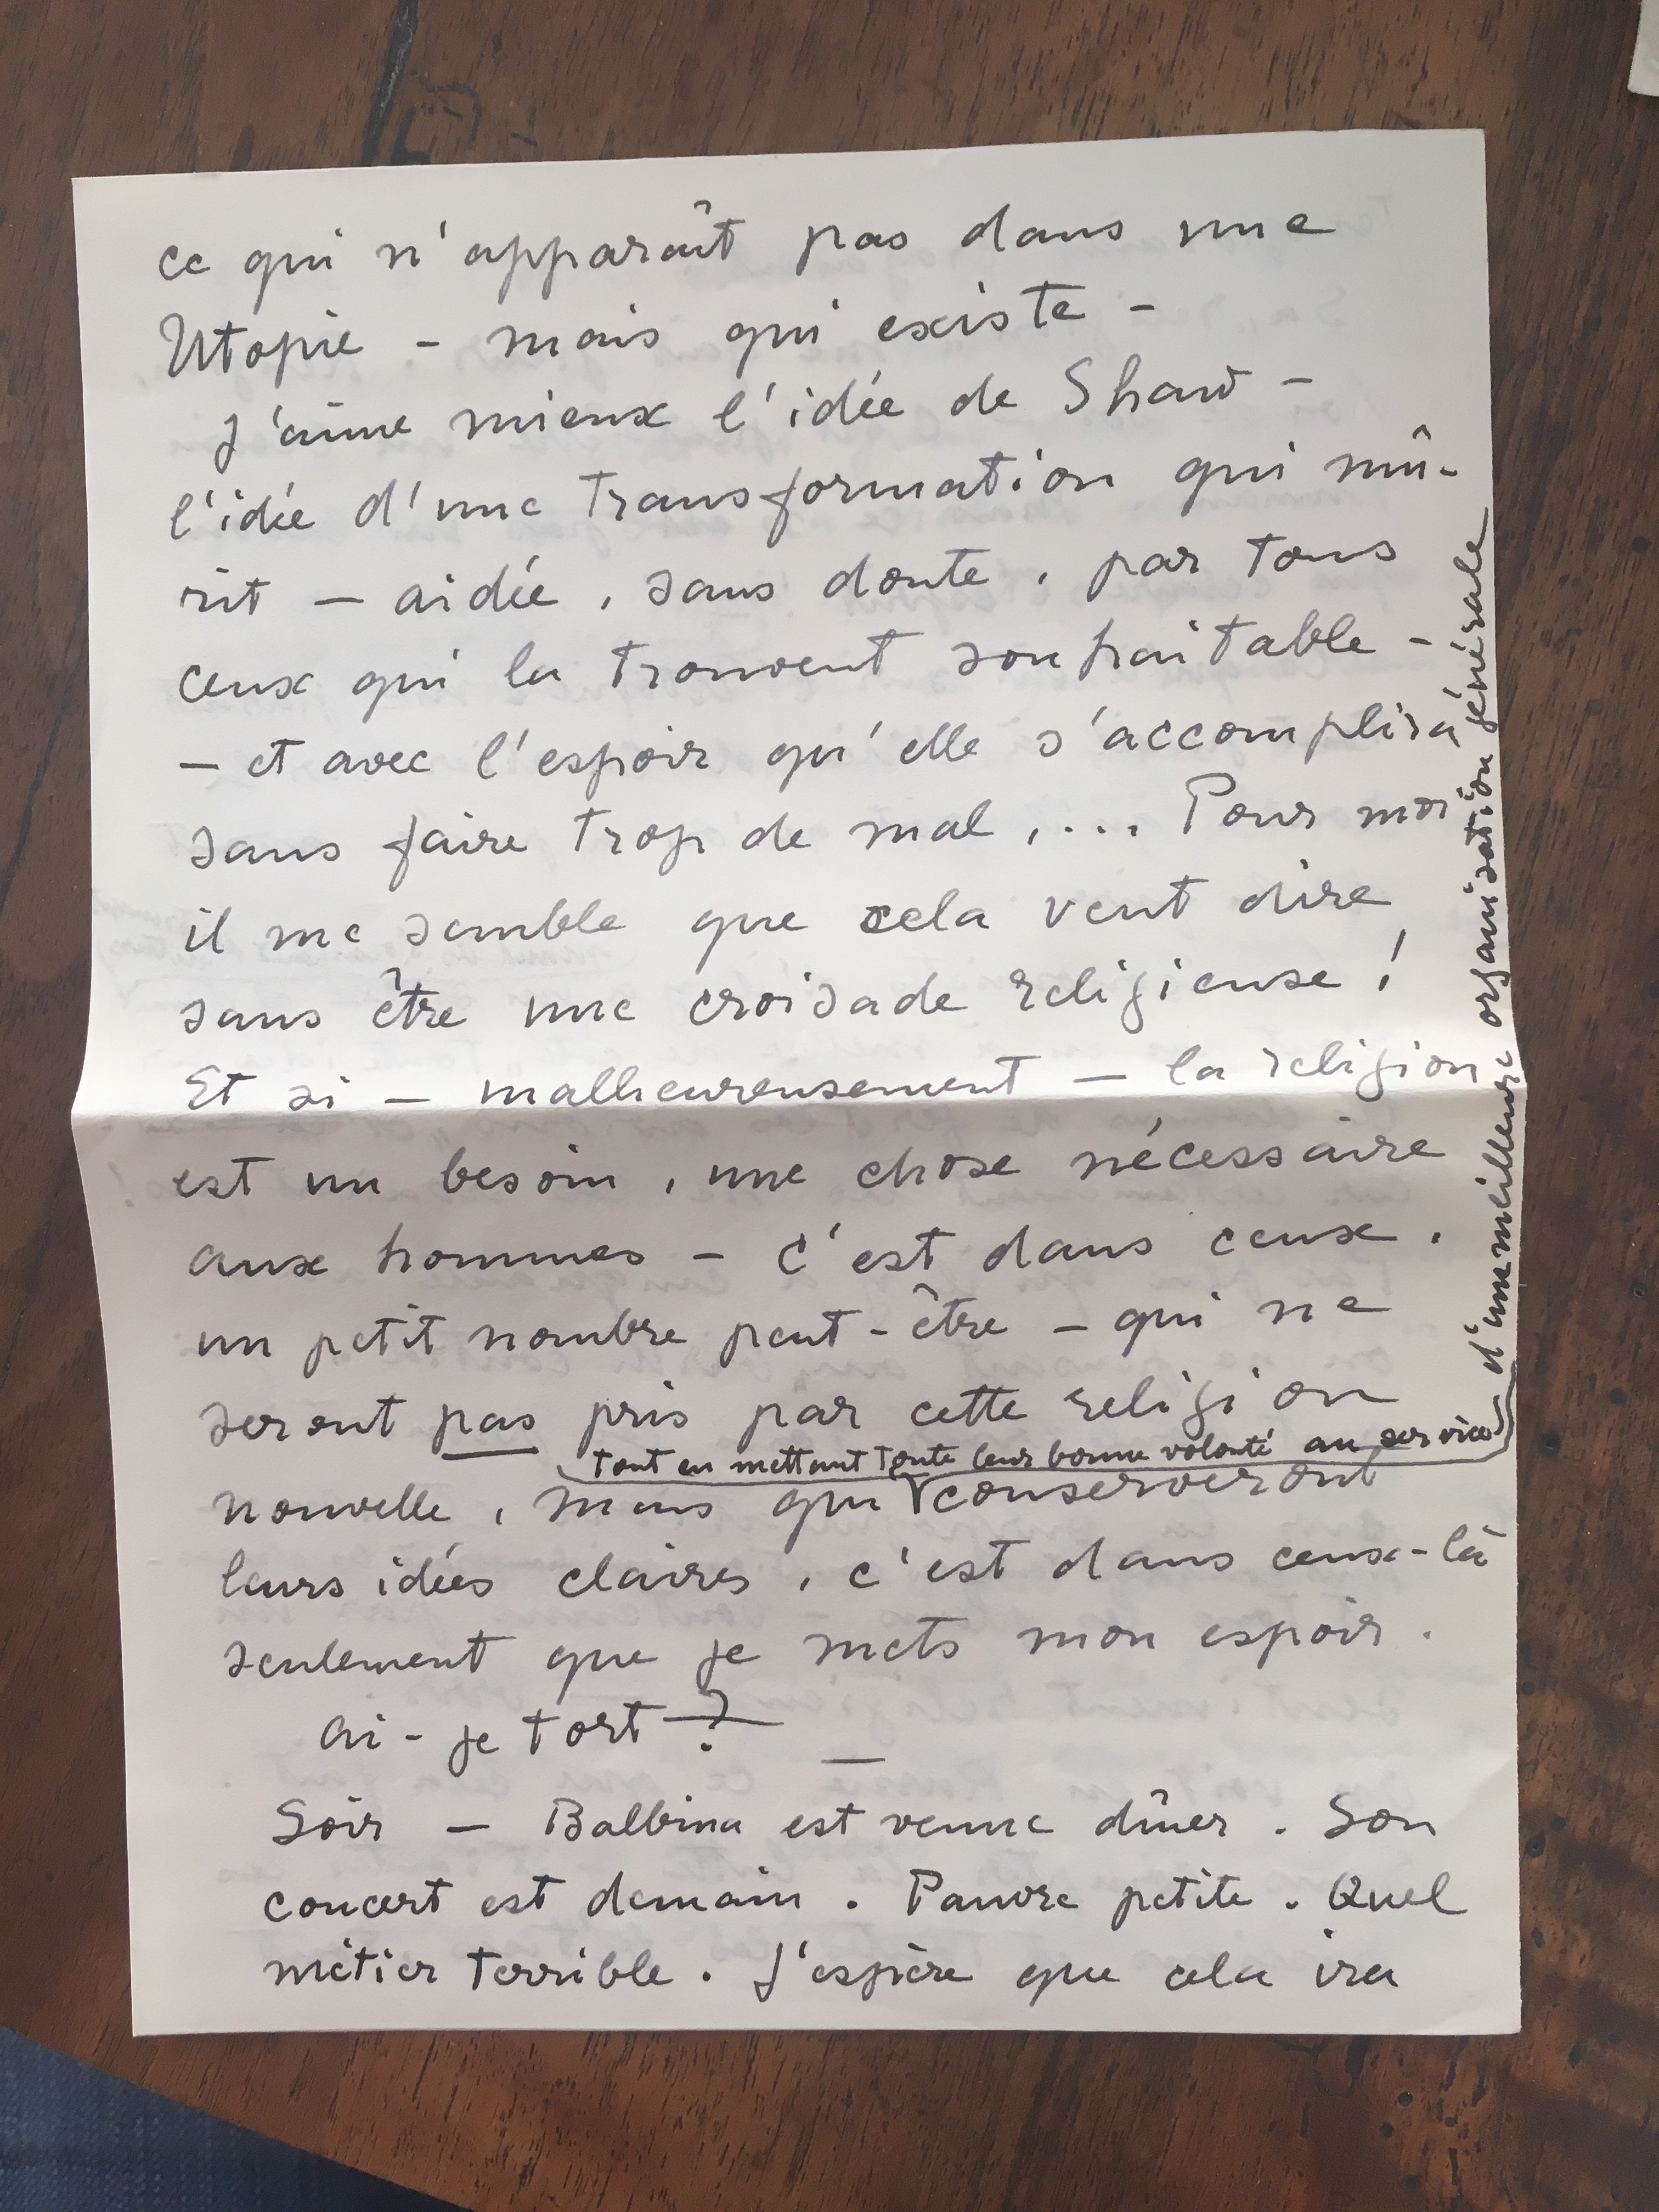 ce qui n'apparaît pas dans une
Utopie – mais qui existe –
J'aime mieux l'idée de Shaw –
l'idée d'une transformation qui mû-
rit – aidée, sans doute, par tous
ceux qui la trouvent souhaitable –
– et avec l'espoir qu'elle s'accomplira
sans faire trop de mal, ... Pour moi
il me semble que cela veut dire
sans être une croisade religieuse !
Et si – malheureusement – la religion
est un besoin, une chose nécessaire
aux hommes – c'est dans ceux,
un petit nombre peut-être – qui ne
seront pas pris par cette religion
tout en mettant toute leur bonne volonté au service
d'une meilleure organisation générale
nouvelle, mais qui conserveront
leurs idées claires, c'est dans ceux-là
seulement que je mets mon espoir.
ai-je tort ?
Soir – Balbina est venue dîner. Son
concert est demain. Pauvre petite. Quel
métier terrible. J'espère que cela ira